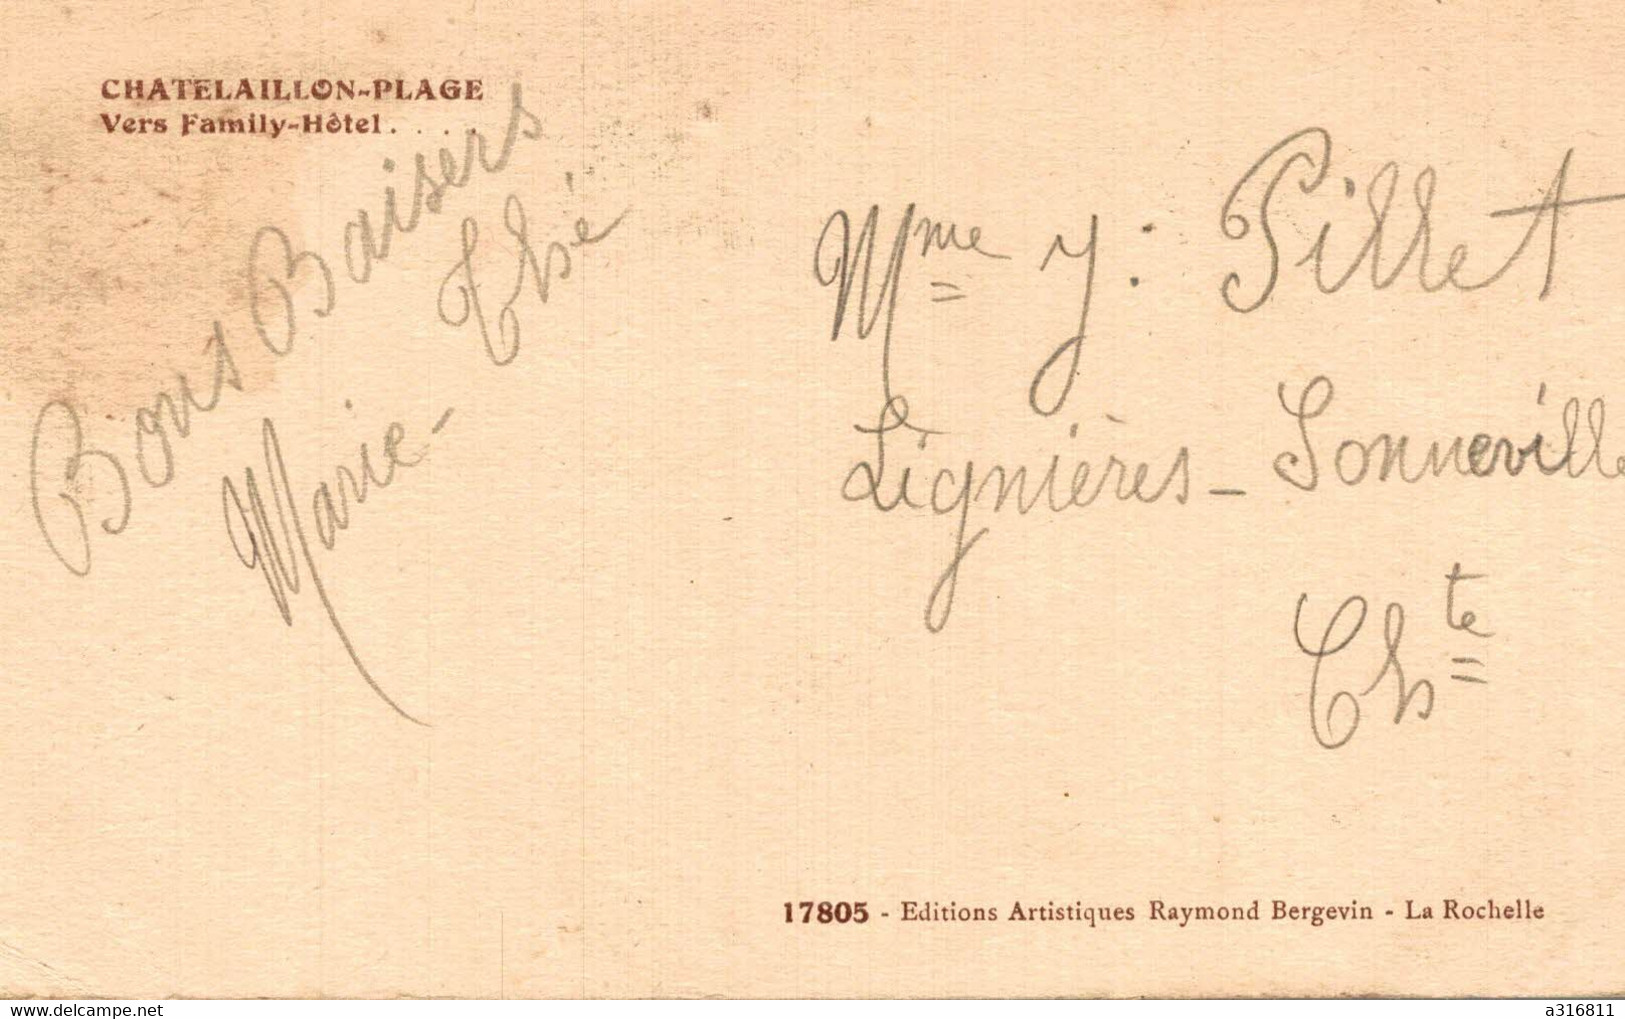 CHATELAILLON-PLAGE
Vers Family-Hôtel . . . .
Bons Baisers
Marie-
Thé
Mme y: Pillet
Lignières - Sonneville
Chte
17805 - Editions Artistiques Raymond Bergevin - La Rochelle
delcampe.net
a316811